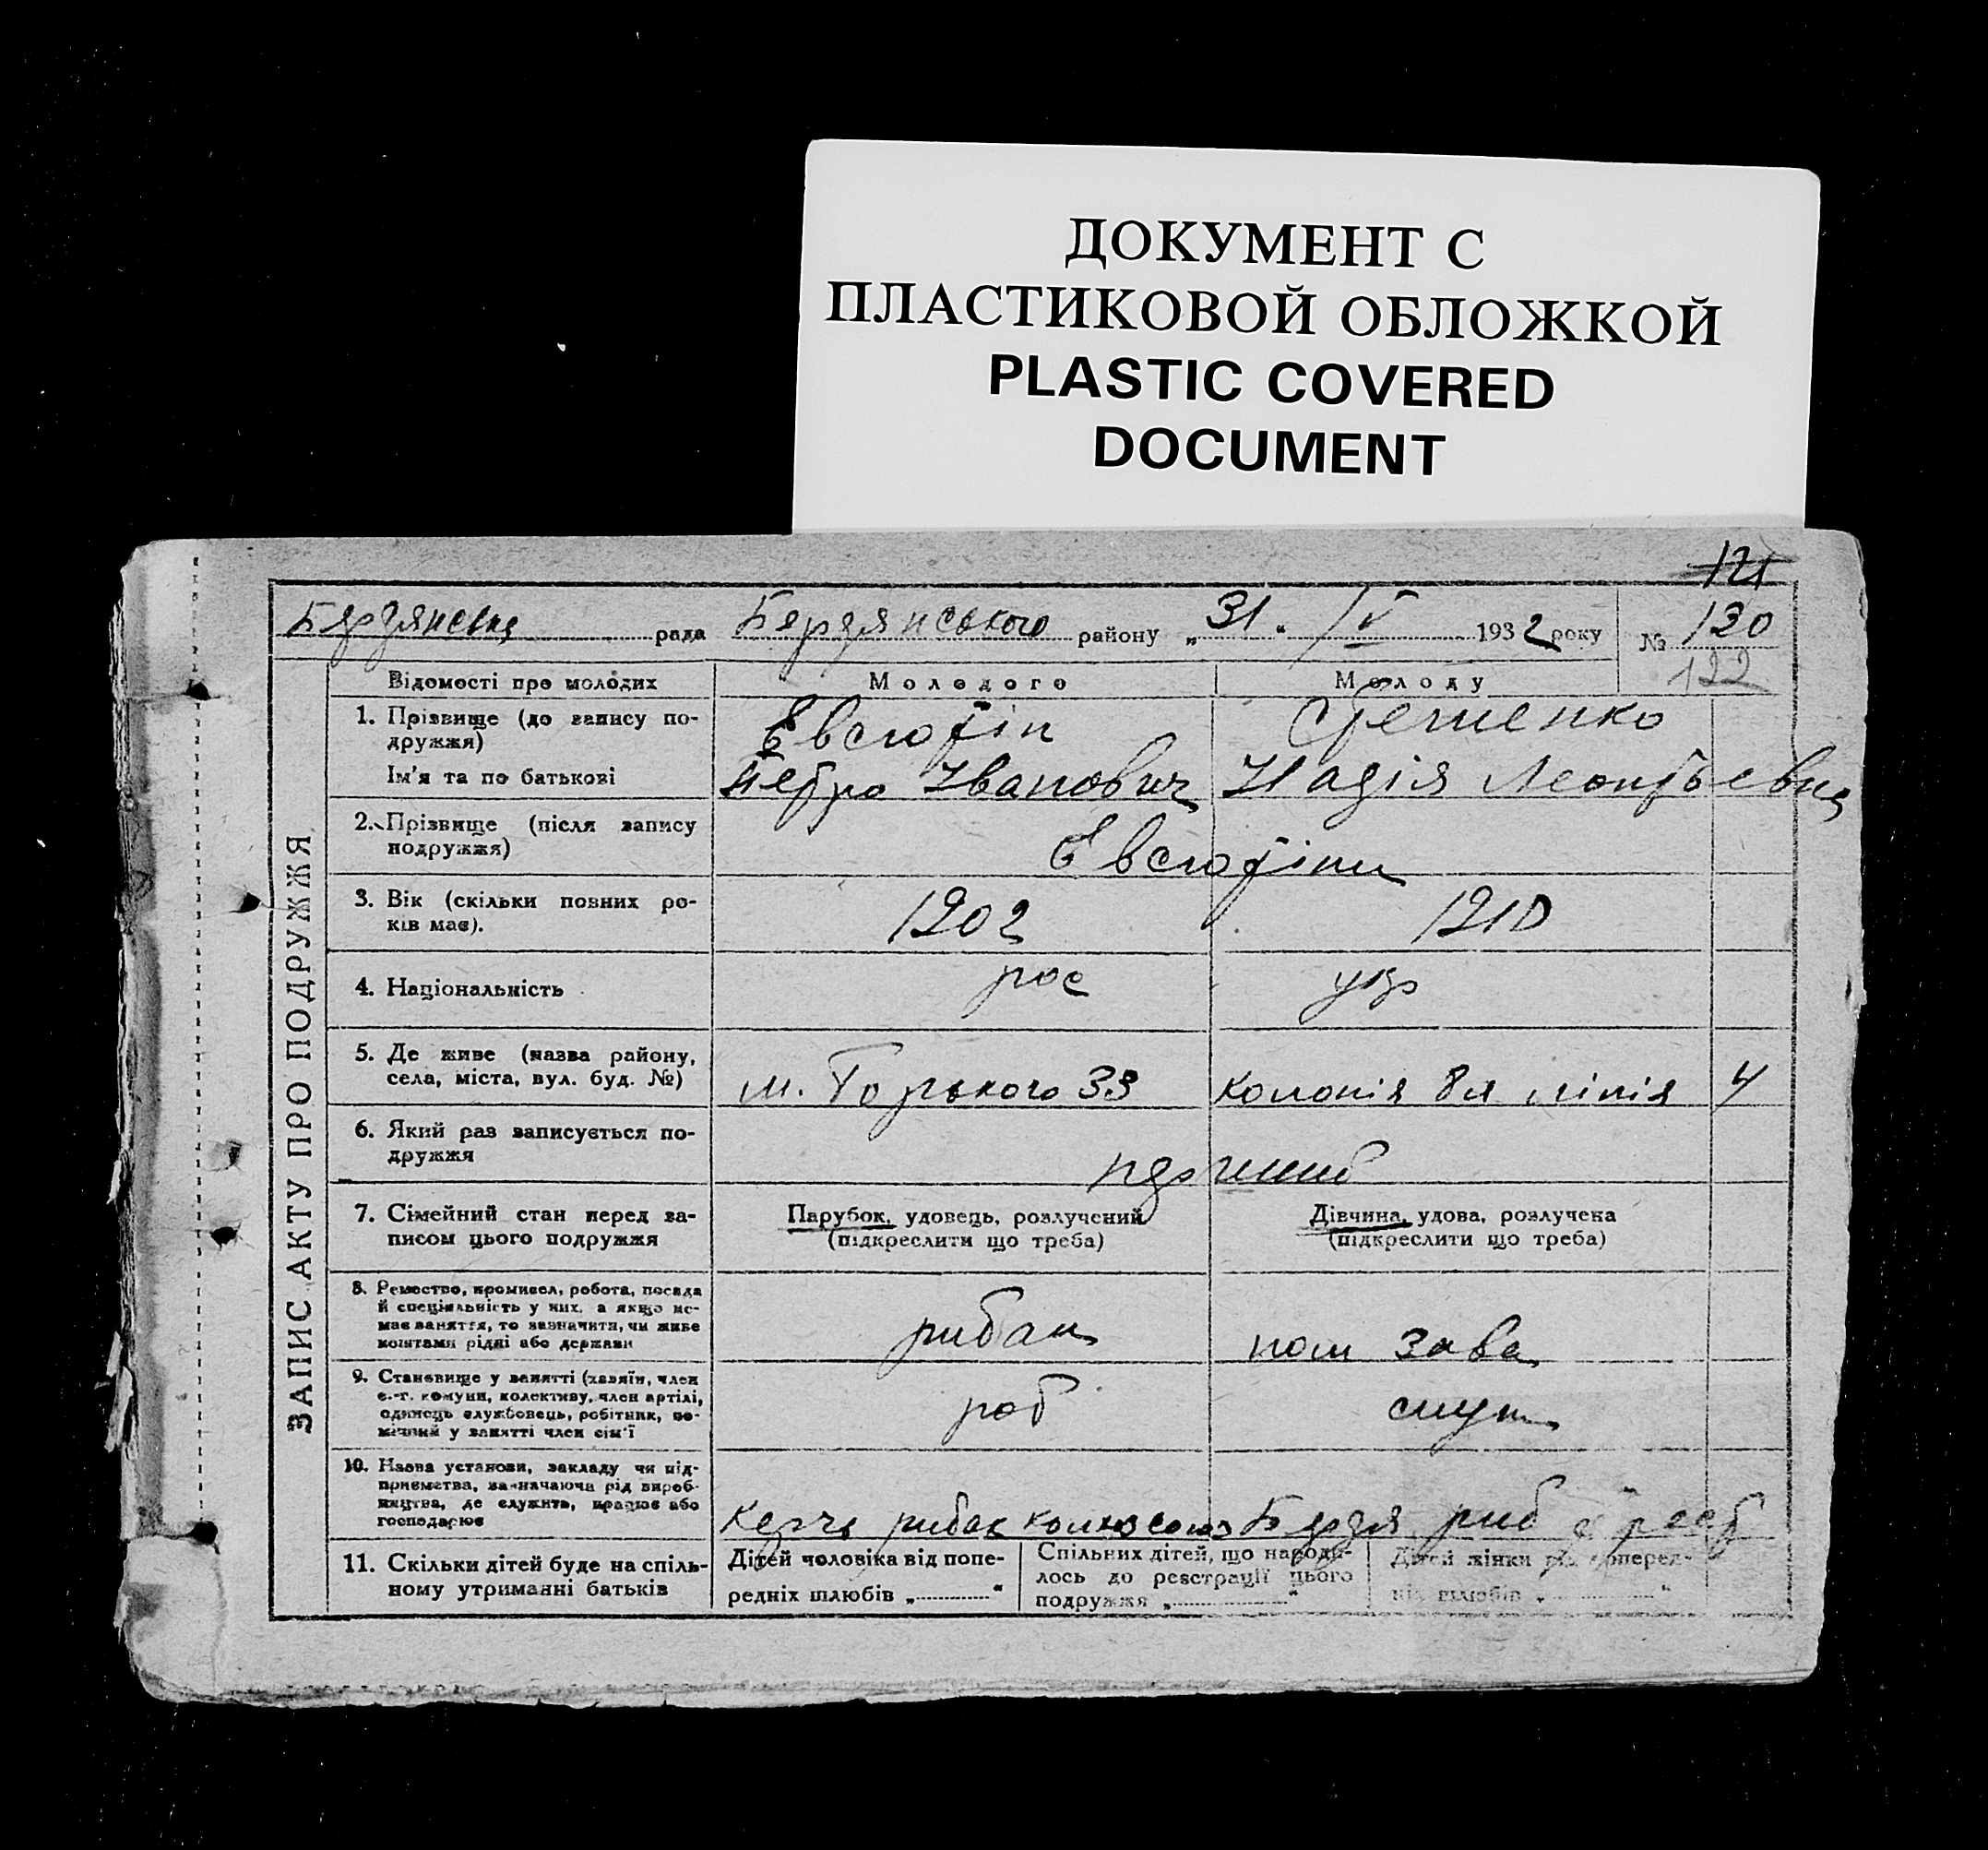 ДОКУМЕНТ С
ПЛАСТИКОВОЙ ОБЛОЖКОЙ
PLASTIC COVERED
DOCUMENT
121
Бердянська рада Бердянського району „31" /V 1932 року № 130
122
ЗАПИС АКТУ ПРО ПОДРУЖЖЯ
Відомості про молодих Молодого Молоду
1. Прізвище (до запису по-
дружжя)
Евсюгін Стешенко
Ім'я та по батькові Петро Іванович Надія Леонтьевна
2. Прізвище (після запису
подружжя)
Евсюгіни
3. Вік (скільки повних ро-
ків має).
1902 1910
4. Національність рос укр
5. Де живе (назва району,
села, міста, вул. буд. №)
м. Горького 33 колонія 8я лінія 4
6. Який раз записується по-
дружжя
7. Сімейний стан перед за-
писом цього подружжя
Парубок, удовець, розлучений
(підкреслити що треба)
Дівчина, удова, розлучена
(підкреслити що треба)
8. Ремество, промисел, робота, посада
й спеціяльність у них, а якщо не-
має заняття, то зазначити, чи живе
коштами рідні або держави
рибак пом зава
9. Становище у занятті (хазяїн, член
с.-г. комуни, колективу, член артілі,
одинець службовець, робітник, по-
мічний у занятті член сім'ї
роб служ
10. Назва установи, закладу чи під-
приємства, зазначаючи рід вироб-
ництва, де служить, працює або
господарює
Керчь рибак колхозсоюз Бердя риб
11. Скільки дітей буде на спіль-
ному утриманні батьків
Дітей чоловіка від попе-
редніх шлюбів „ “
Спільних дітей, що народи-
лось до реєстрації цього
подружжя „ “
Дітей жінки від поперед-
ніх шлюбів „ “